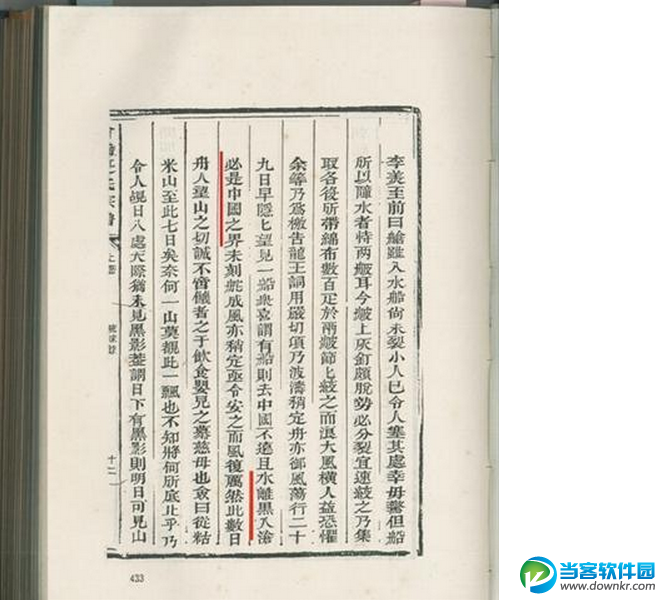 李美至前曰艙雖入水船尚未裂小人已令人塞其處幸毋驚但船
所以障水者恃两艕耳今艕上灰釘頗脫勢必分裂宜速絞之乃集
取各後所帶綿布數百疋於兩艕節匕絞之而浪大風橫人益恐懼
余等乃爲檄告龍王詞用嚴切頃乃波濤稍定舟亦御風蕩行二十
九日早隱匕望見一船衆喜謂有船則去中國不遠且水離黑入滄
必是中國之界未刻舵戚風亦稍定亟令安之而風復厲然此數日
舟人望山之切誠不啻饑者之于飲食嬰見之慕慈母也僉曰從粘
米山至此七日矣奈何一山莫覩此一飄也不知將何所底止乎乃
令人覘日入處天際猶未見黑影蓋謂日下有黑影則明日可見山
上
十二
433
当客软件园
www.downkr.com